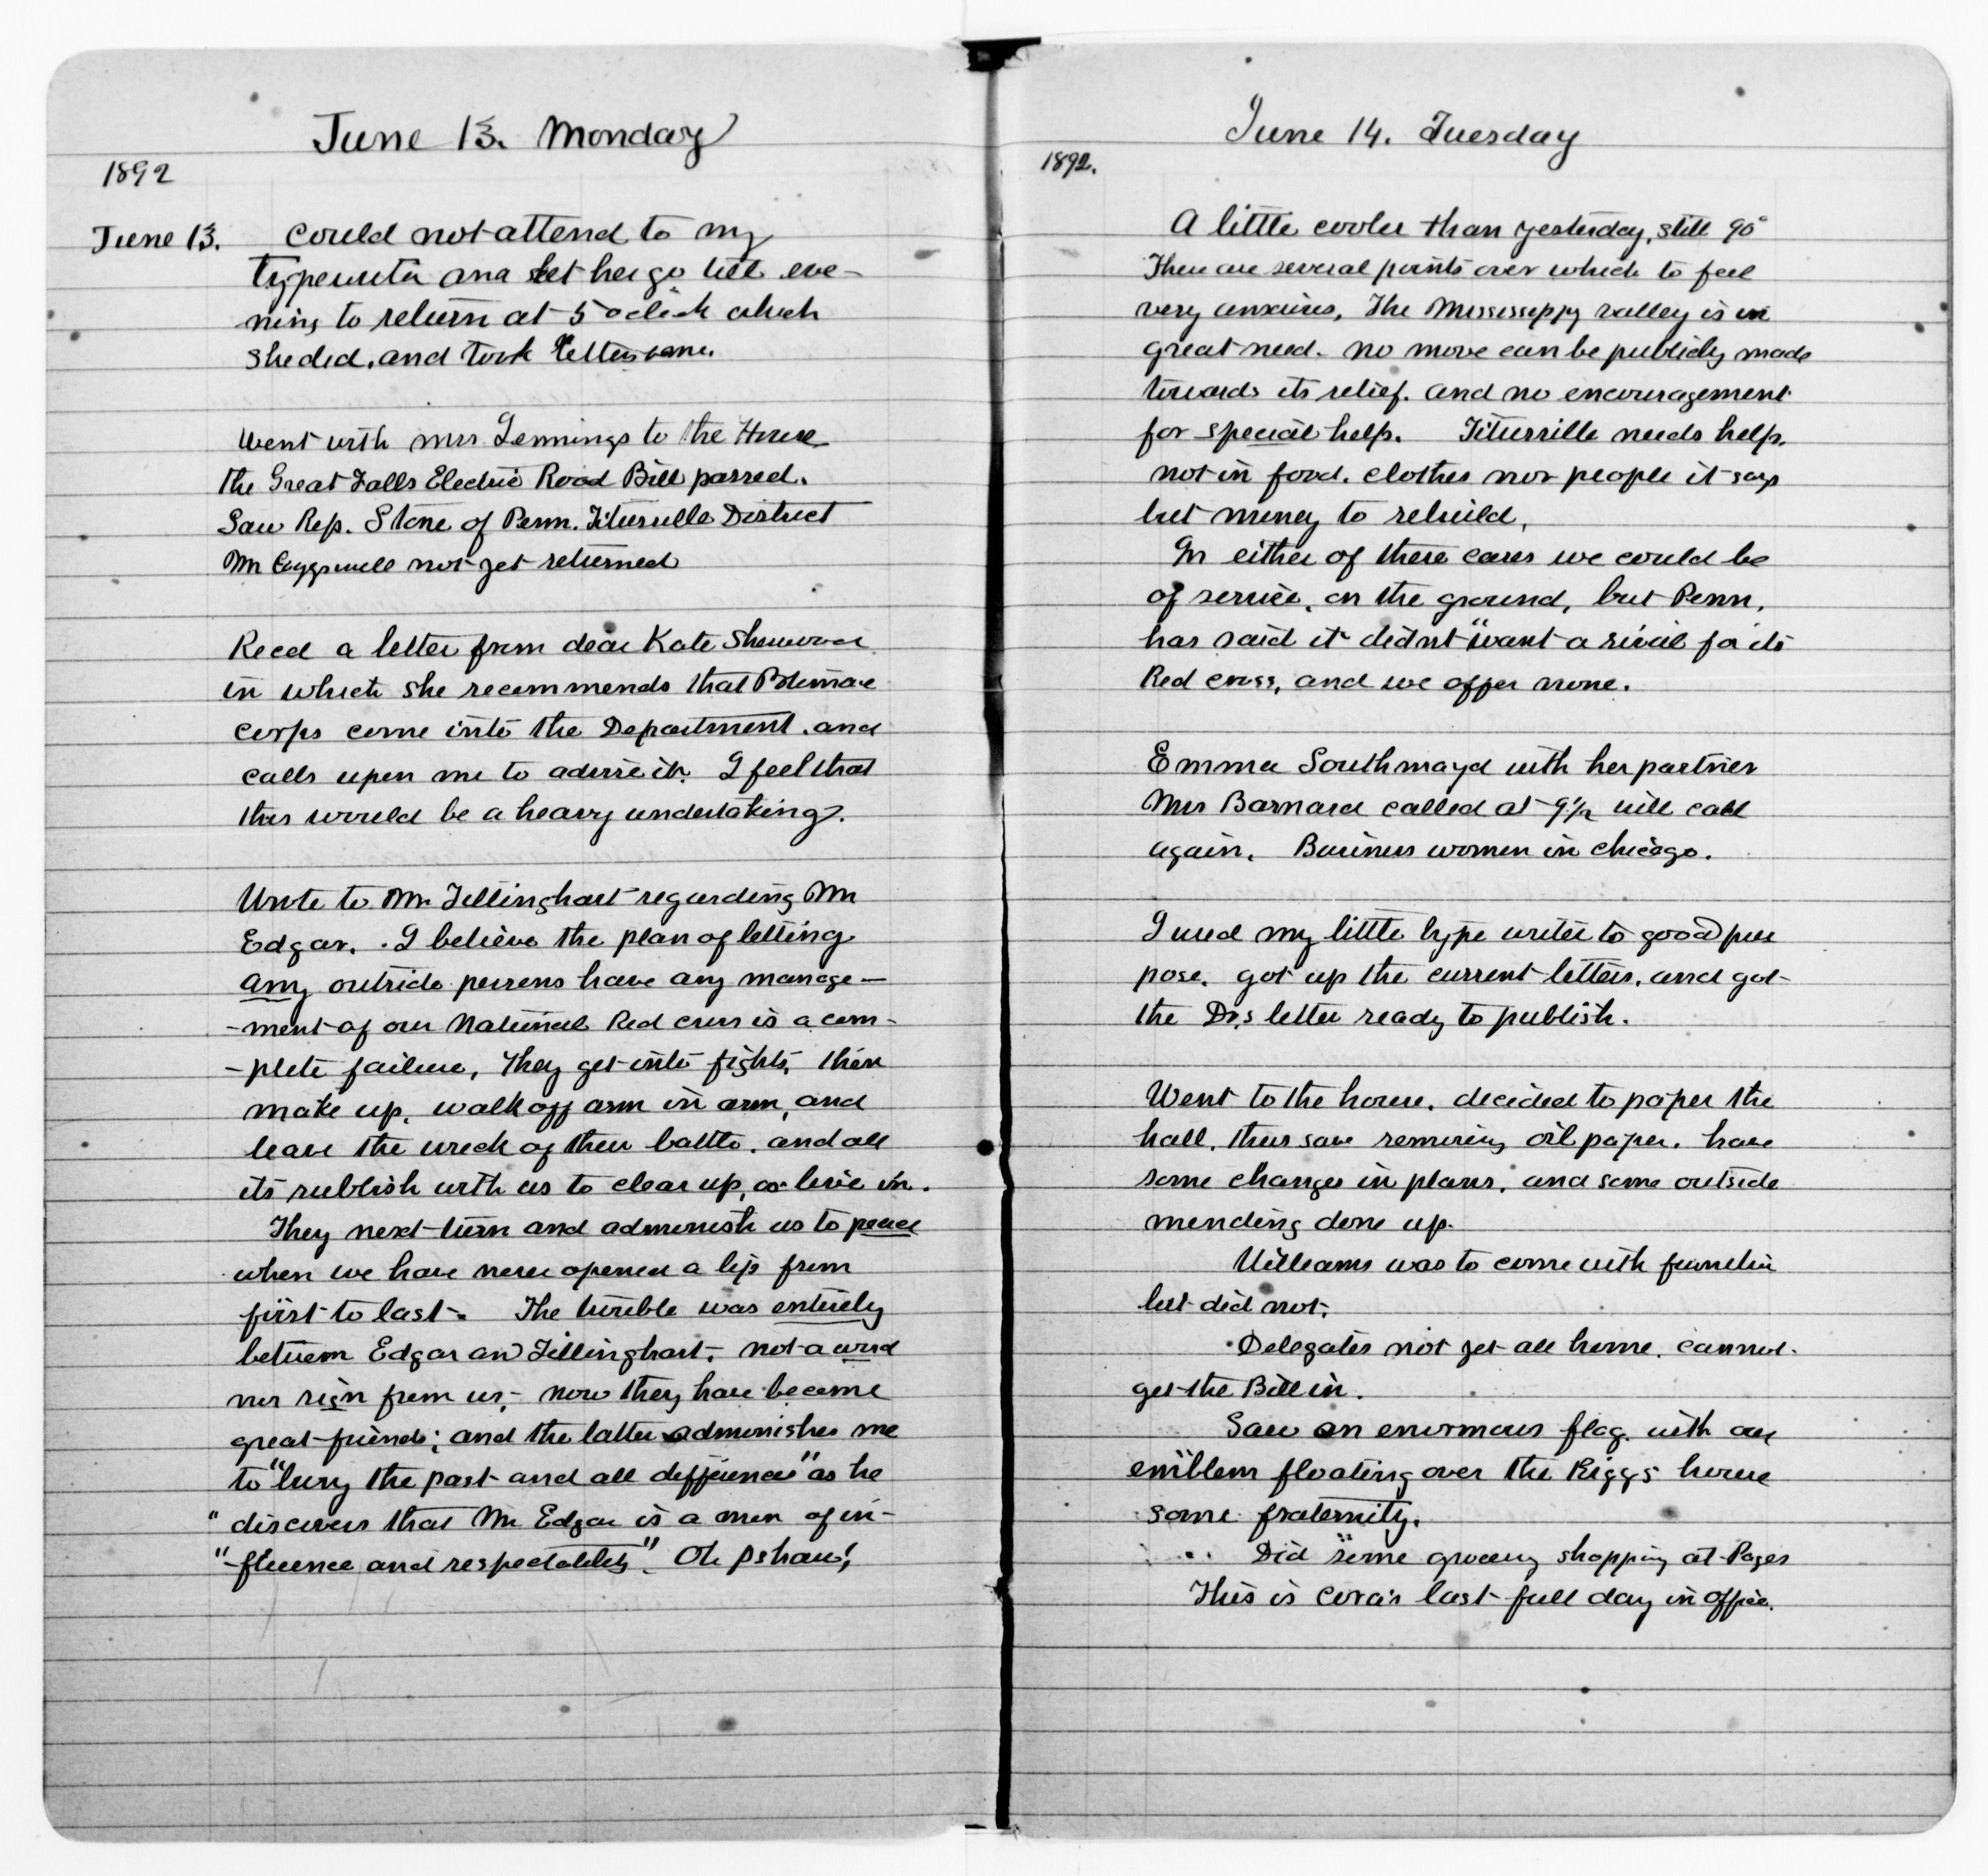 June 13. Monday
1892
June 13. Could not attend to my
typewriter and let her go till eve-
ning to return at 5 oclock which
she did, and took letters some.
Went with Mrs Jennings to the House
the Great Falls Electric Road Bill passed.
Saw Rep. Stone of Penn. Titusville District
Mr Coggswell not yet returned
Recd a letter from dear Kate Sherwood
in which she recommends that Potomac
corps come into the Department. and
calls upon me to advise it. I feel that
this would be a heavy undertaking.
Wrote to Mr. Tillinghast regarding Mr
Edgar. I believe the plan of letting
any outside persons have any manage-
-ment of our National Red cross is a com-
-plete failure, They get into fights, then
make up, walk off arm in arm, and
leave the wreck of their battle. and all
its rubbish with us to clear up, or live in.
They next turn and admonish us to peace
when we have never opened a lip from
first to last. The trouble was entirely
between Edgar and Tillinghast, not a word
nor sign from us, now they have become
great friends; and the latter admonishes me
to "bury the past and all differences" as he
" discovers that Mr Edgar is a man of in-
"-fluence and respectability". Oh pshaw!
June 14. Tuesday
1892.
A little cooler than yesterday, still 90°
There are several points over which to feel
very anxious, The Mississippy valley is in
great need. no move can be publicly made
towards its relief. and no encouragement
for special help. Titusville needs help.
not in food. clothes nor people it says
but money to rebuild,
In either of these cases we could be
of service, on the ground, but Penn.
has said it didnt "want a rival for its
Red cross, and we offer none.
Emma Southmayd with her partner
Mrs Barnard called at 9½ will call
again. Business women in Chicago.
I used my little type writer to good pur
pose. got up the current letters. and got
the Drs letter ready to publish.
Went to the house. decided to paper the
hall. thus save removing oil paper. have
some changes in plans. and some outside
mending done up.
Williams was to come with furniture
but did not.
Delegates not yet all home. cannot
get the Bill in.
Saw an enormous flag. with our
emblem floating over the Riggs house
some fraternity.
Did some grocery shopping at Pages
This is Cora's last full day in office.